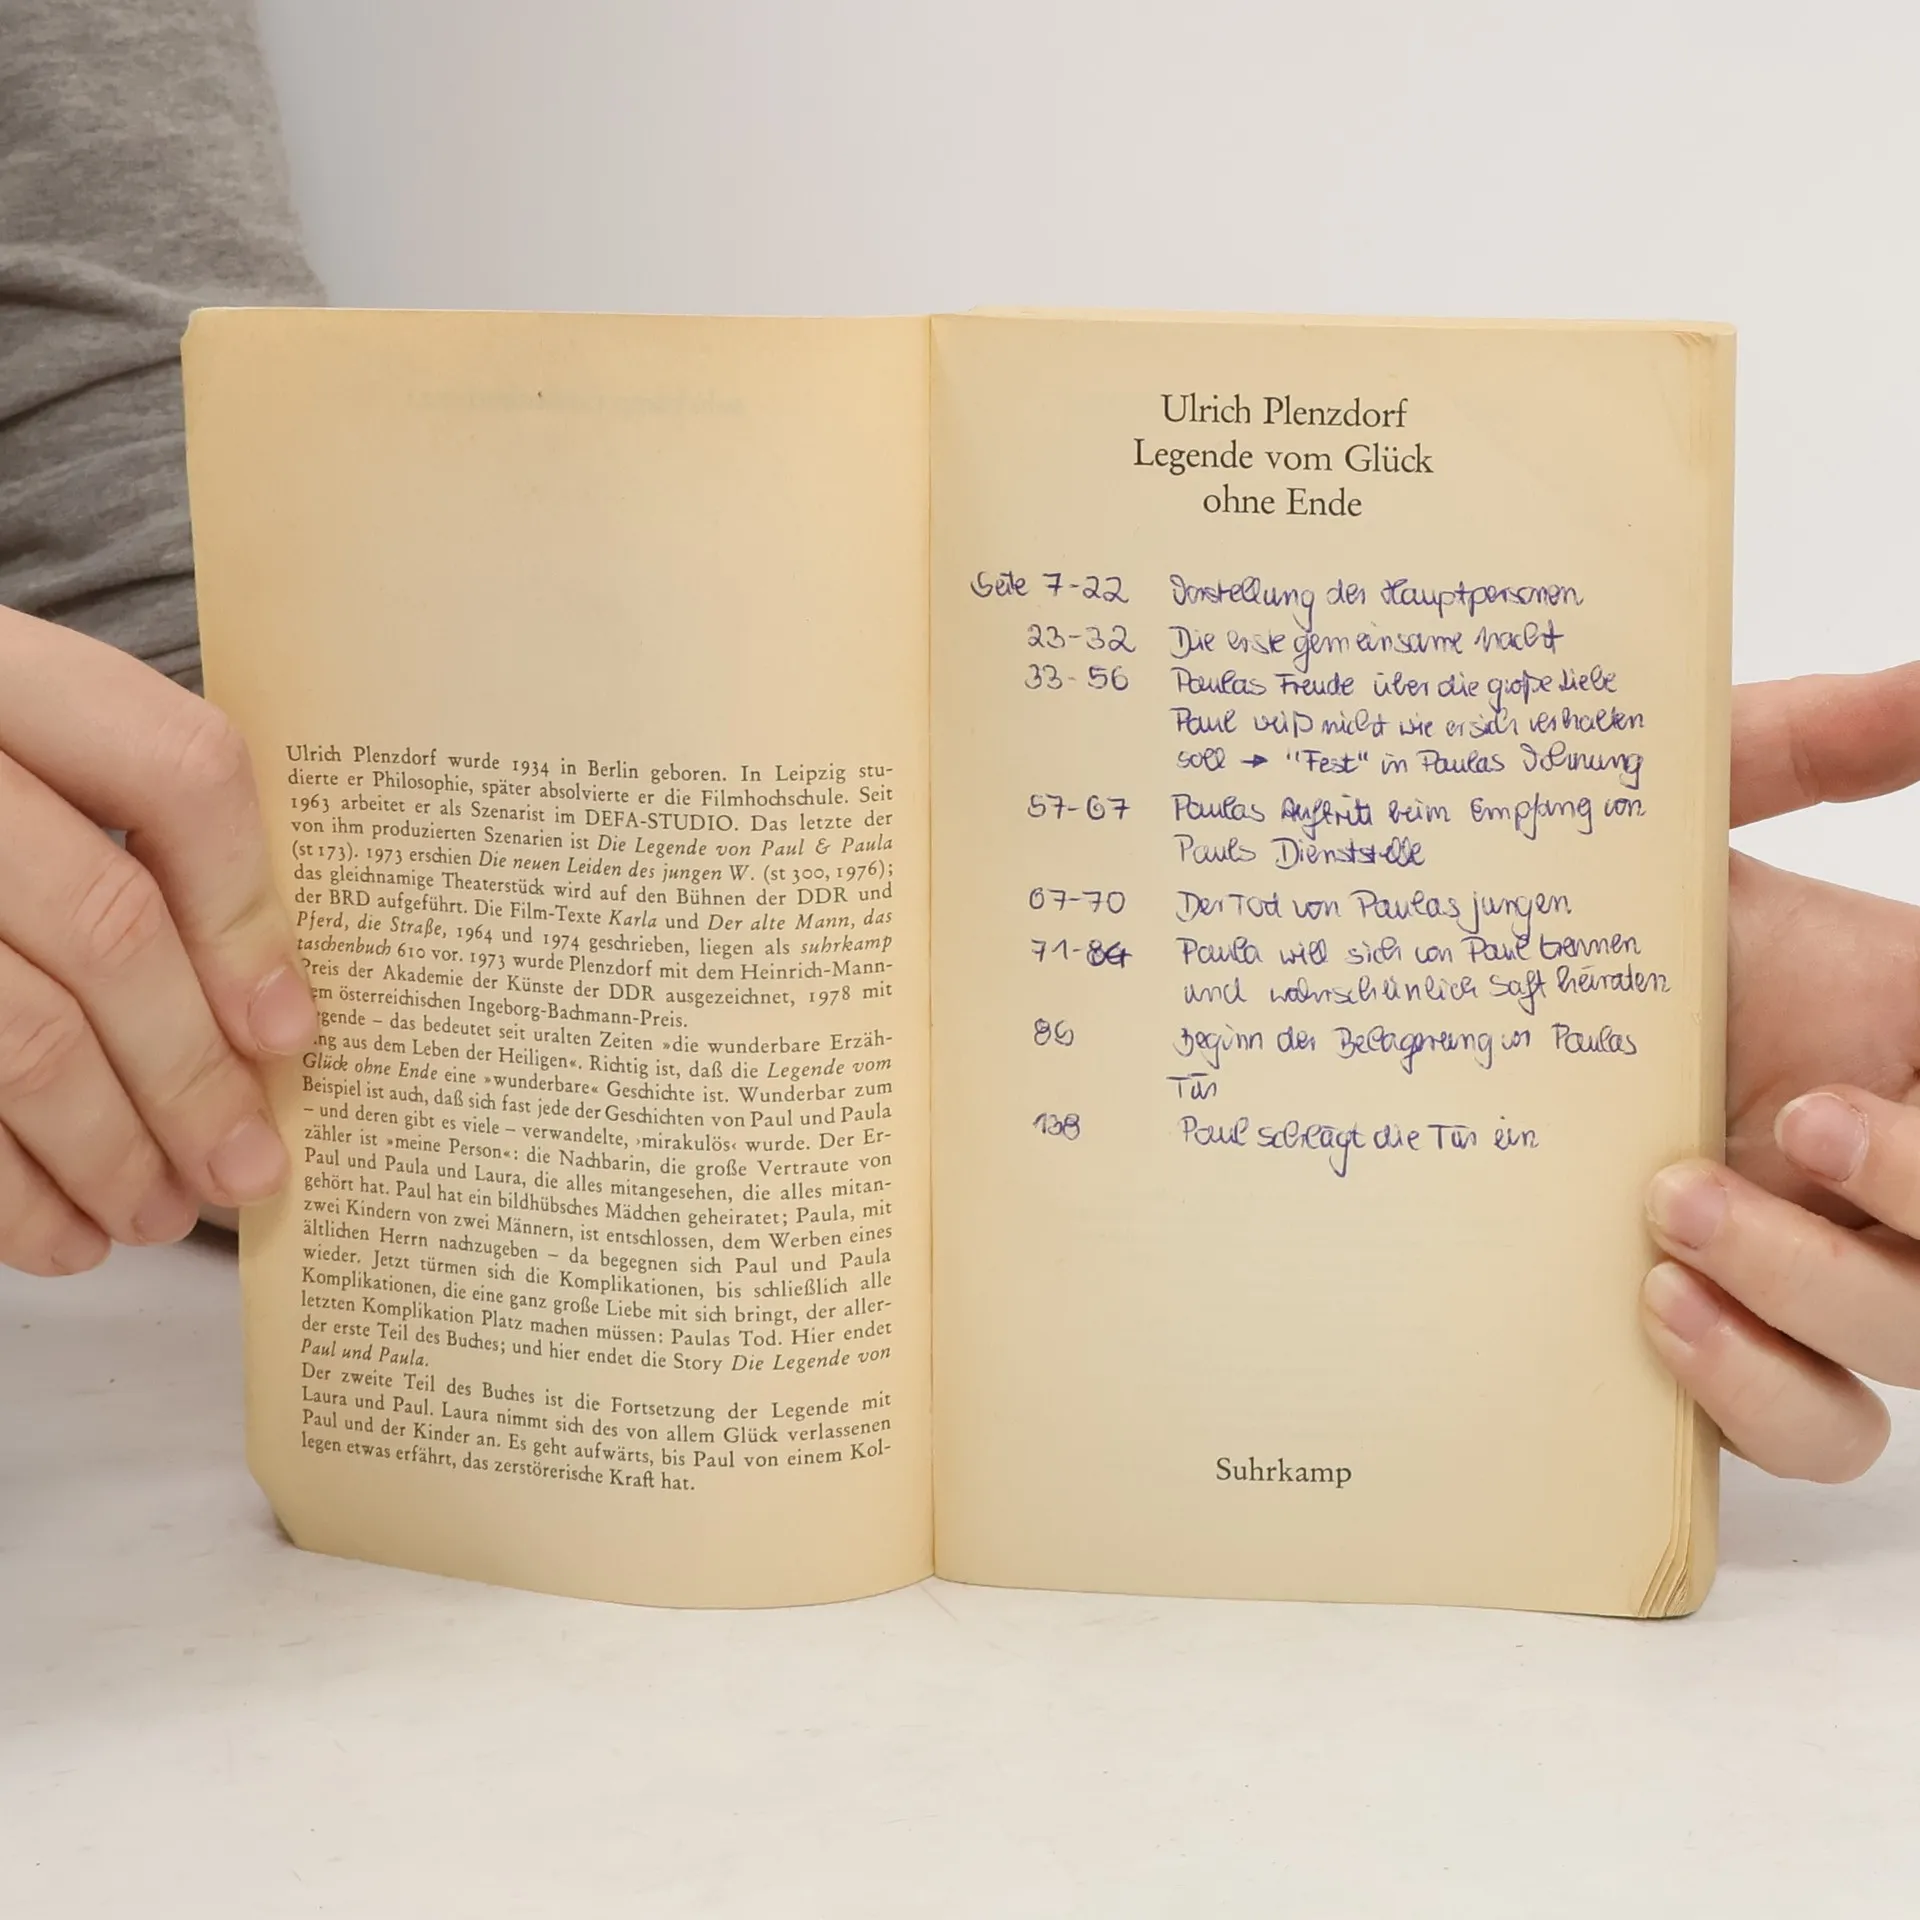 Ulrich Plenzdorf wurde 1934 in Berlin geboren. In Leipzig stu-
dierte er Philosophie, später absolvierte er die Filmhochschule. Seit
1963 arbeitet er als Szenarist im DEFA-STUDIO. Das letzte der
von ihm produzierten Szenarien ist Die Legende von Paul & Paula
(st 173). 1973 erschien Die neuen Leiden des jungen W. (st 300, 1976);
das gleichnamige Theaterstück wird auf den Bühnen der DDR und
der BRD aufgeführt. Die Film-Texte Karla und Der alte Mann, das
Pferd, die Straße, 1964 und 1974 geschrieben, liegen als suhrkamp
taschenbuch 610 vor. 1973 wurde Plenzdorf mit dem Heinrich-Mann-
Preis der Akademie der Künste der DDR ausgezeichnet, 1978 mit
em österreichischen Ingeborg-Bachmann-Preis.
gende – das bedeutet seit uralten Zeiten »die wunderbare Erzäh-
ng aus dem Leben der Heiligen«. Richtig ist, daß die Legende vom
Glück ohne Ende eine »wunderbare« Geschichte ist. Wunderbar zum
Beispiel ist auch, daß sich fast jede der Geschichten von Paul und Paula
– und deren gibt es viele – verwandelte, ›mirakulös‹ wurde. Der Er-
zähler ist »meine Person«: die Nachbarin, die große Vertraute von
Paul und Paula und Laura, die alles mitangesehen, die alles mitan-
gehört hat. Paul hat ein bildhübsches Mädchen geheiratet; Paula, mit
zwei Kindern von zwei Männern, ist entschlossen, dem Werben eines
ältlichen Herrn nachzugeben – da begegnen sich Paul und Paula
wieder. Jetzt türmen sich die Komplikationen, bis schließlich alle
Komplikationen, die eine ganz große Liebe mit sich bringt, der aller-
letzten Komplikation Platz machen müssen: Paulas Tod. Hier endet
der erste Teil des Buches; und hier endet die Story Die Legende von
Paul und Paula.
Der zweite Teil des Buches ist die Fortsetzung der Legende mit
Laura und Paul. Laura nimmt sich des von allem Glück verlassenen
Paul und der Kinder an. Es geht aufwärts, bis Paul von einem Kol-
legen etwas erfährt, das zerstörerische Kraft hat.
Ulrich Plenzdorf
Legende vom Glück
ohne Ende
Seite 7-22 Vorstellung der Hauptpersonen
23-32 Die erste gemeinsame Nacht
33-56 Paulas Freude über die große Liebe
Paul weiß nicht wie er sich verhalten
soll → "Fest" in Paulas Wohnung
57-67 Paulas Auftritt beim Empfang von
Pauls Dienststelle
67-70 Der Tod von Paulas jungen
71-84 Paula will sich von Paul trennen
und wahrscheinlich Saft heiraten
86 Beginn der Belagerung vor Paulas
Tür
138 Paul schlägt die Tür ein
Suhrkamp